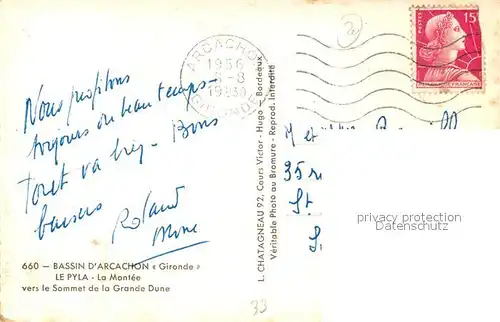 Nous profitons
toujours du beau temps -
Tout va bien - Bons
baisers
Roland
660 — BASSIN D'ARCACHON « Gironde »
LE PYLA - La Montée
vers le Sommet de la Grande Dune
L. CHATAGNEAU 92, Cours Victor - Hugo - Bordeaux
Véritable Photo au Bromure - Reprod. Interdite
ARCACHON
1956
GIRONDE
15F
M et
35 r
St
privacy protection
Datenschutz
33